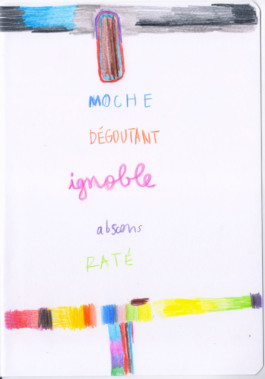 MOCHE
DÉGOUTANT
ignoble
abscons
RATÉ